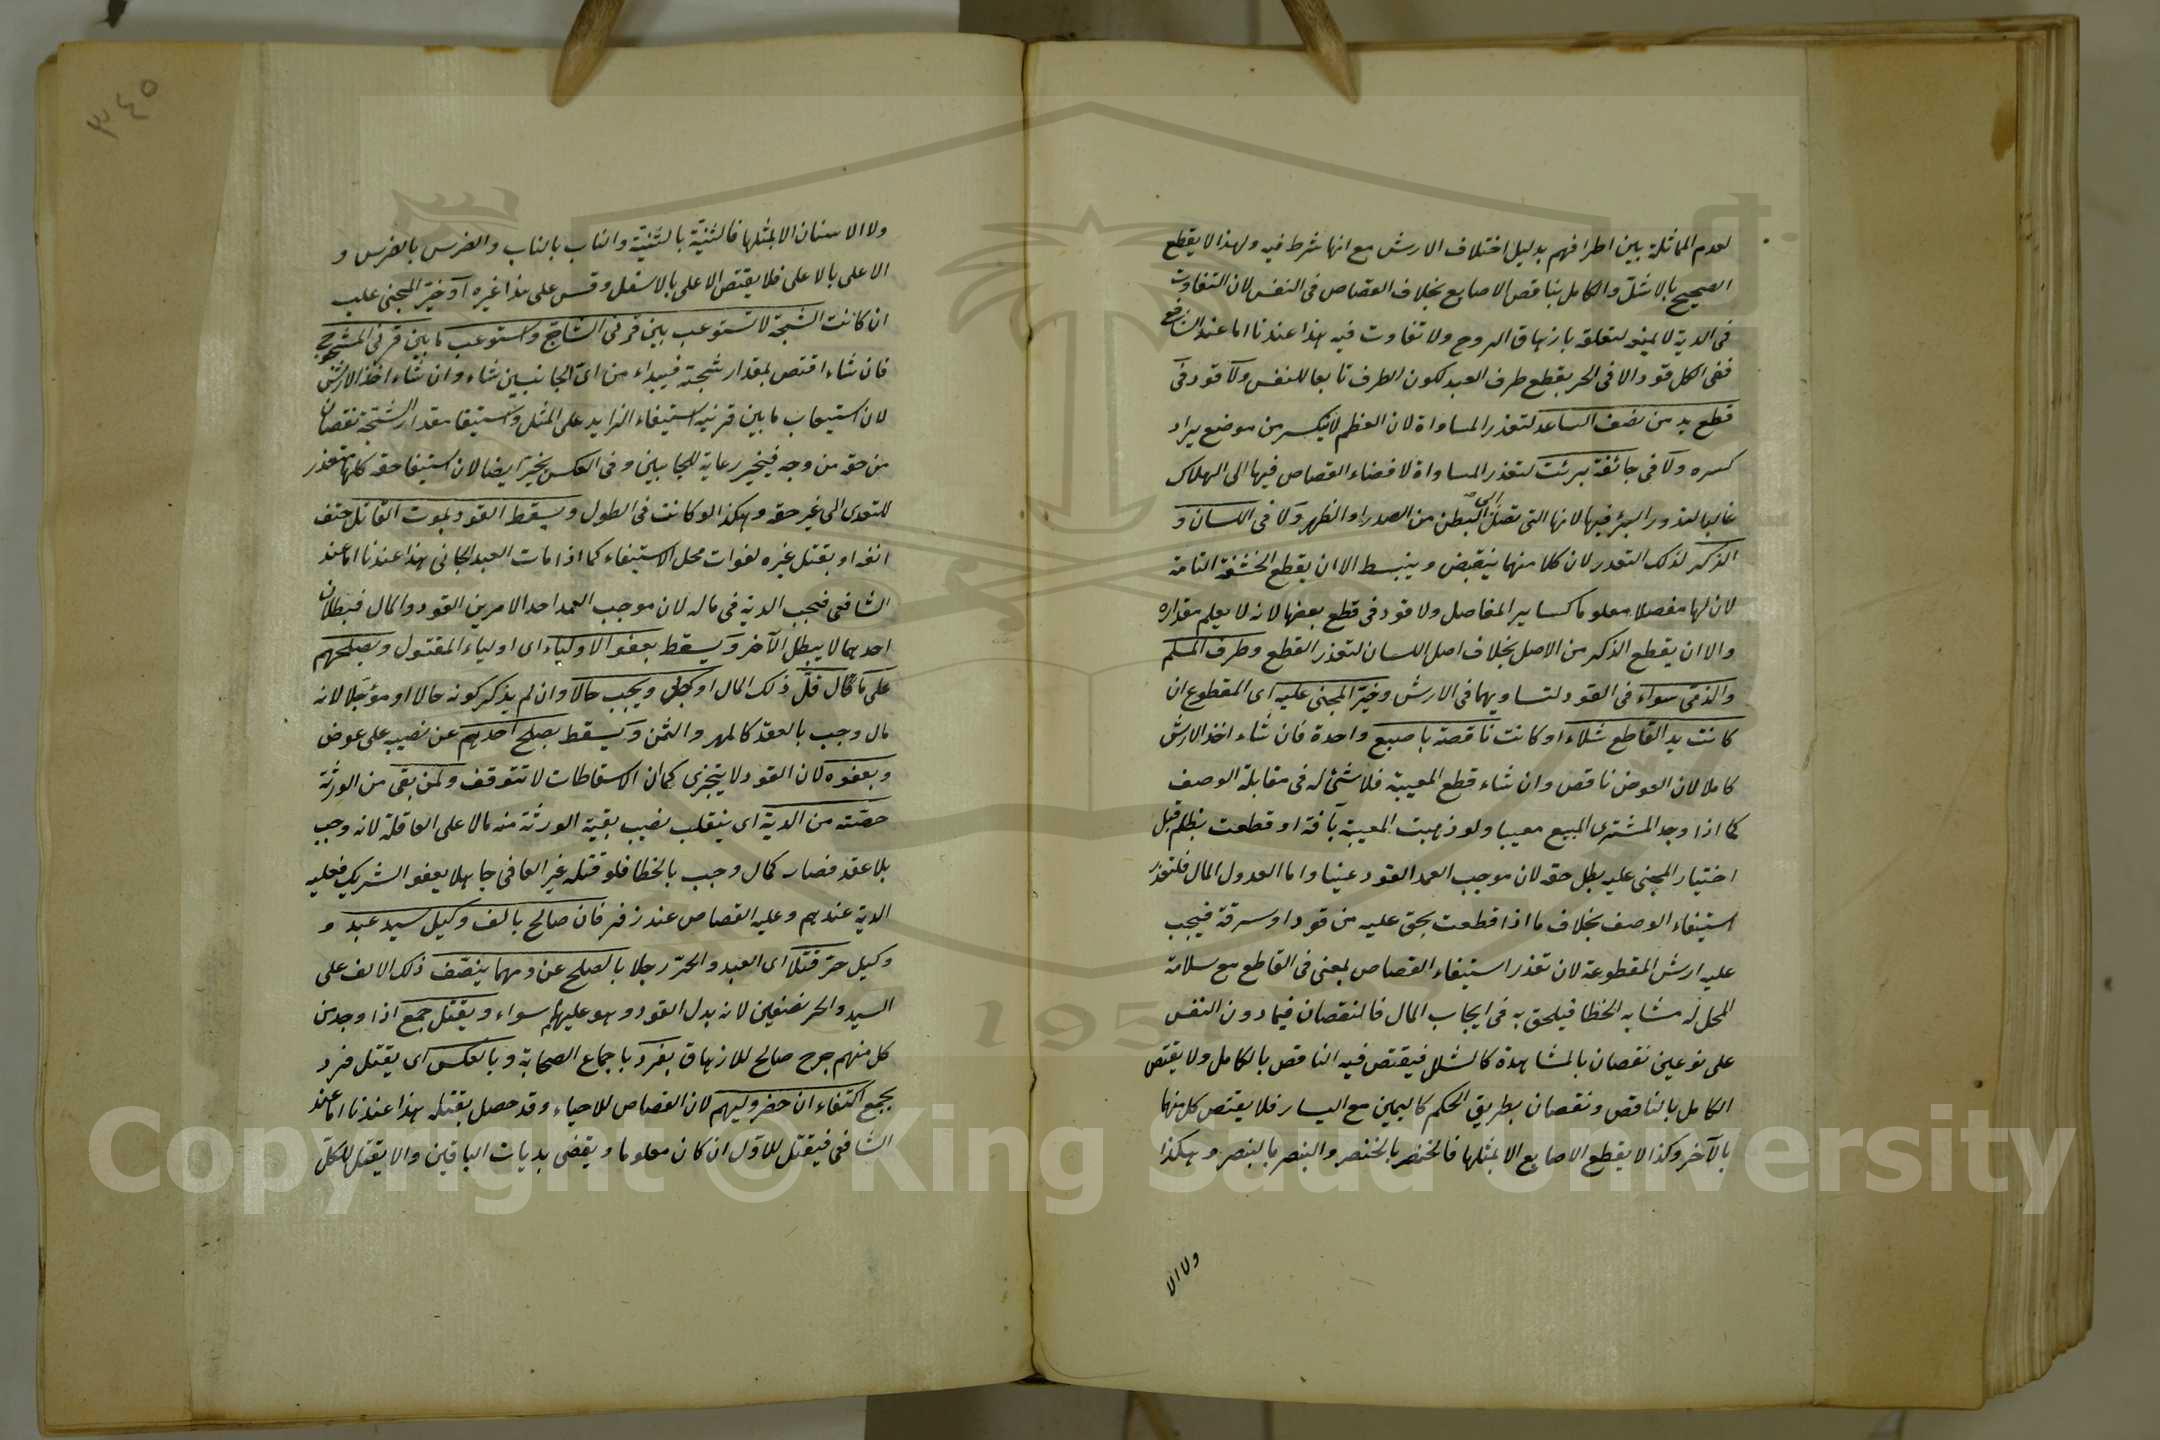 لعدم المماثلة بين اطرافهم بدليل اختلاف الارش مع انها شرط فيه ولهذا لا يقطع
الصحيح بالاشلّ والكامل بناقص الاصابع بخلاف القصاص فى النفس لان التفاوت
فى الدية لا يمنع لتعلقه بازهاق الروح ولا تفاوت فيه هذا عندنا اما عند الشافعى
ففى الكل قود الا فى الحر بقطع طرف العبد لكون الطرف تابعا للنفس ولا قود فى
قطع يد من نصف الساعد لتعذر المساواة لان العظم لا ينكسر من موضع يراد
كسره ولا فى جائفة برئت لتعذر المساواة لافضاء القصاص فيها الى الهلاك
غالبا لندور البرء فيها لانها التى تصل الى البطن من الصدر او الظهر ولا فى اللسان و
الذكر لذلك التعذر لان كلا منهما ينقبض وينبسط الا ان يقطع الحشفة التامة
لان لها مفصلا معلوما كساير المفاصل ولا قود فى قطع بعضها لانه لا يعلم مقداره
والا ان يقطع الذكر من الاصل بخلاف اصل اللسان لتعذر القطع وطرف المسلم
والذمى سواء فى القود لتساويهما فى الارش وخيّر المجنى عليه اى المقطوع ان
كانت يد القاطع شلاء او كانت ناقصة باصبع واحدة فان شاء اخذ الارش
كاملا لان العوض ناقص وان شاء قطع المعيبة فلا شئ له فى مقابلة الوصف
كما اذا وجد المشترى المبيع معيبا ولو ذهبت المعيبة بآفة او قطعت بظلم قبل
اختيار المجنى عليه بطل حقه لان موجب العمد القود عينا واما العدول المال فلتعذر
استيفاء الوصف بخلاف ما اذا قطعت بحق عليه من قود او سرقة فيجب
عليه ارش المقطوعة لان تعذر استيفاء القصاص لمعنى فى القاطع مع سلامة
المحل له مشابه الخطا فيلحق به فى ايجاب المال فالنقصان فيما دون النفس
على نوعين نقصان بالمشاهدة كالشلل فيقتص فيه الناقص بالكامل ولا يقتص
الكامل بالناقص ونقصان بطريق الحكم كاليمين مع اليسار فلا يقتص كل منهما
بالآخر وكذا لا يقطع الاصابع الا بمثلها فالخنصر بالخنصر والبنصر بالبنصر وهكذا
ولا الا
٣٤٥
ولا الاسنان الا بمثلها فالثنيّة بالثنيّة والناب بالناب والضرس بالضرس و
الاعلى بالاعلى فلا يقتص الاعلى بالاسفل وقس على هذا غيره او خيّر المجنى عليه
ان كانت الشجة لا تستوعب بين قرنى الشاجّ واستوعب ما بين قرنى المشجوج
فان شاء اقتص بمقدار شجته فيبداء من اىّ الجانبين شاء وان شاء اخذ الارش
لان استيعاب ما بين قرنيه استيفاء الزايد على المثل واستيفا مقدار الشجّة نقصان
من حقه من وجه فيخير رعاية للجانبين وفى العكس يخير ايضا لان استيفا حقه كلها متعذر
للتعدى الى غير حقه وهكذا لو كانت فى الطول ويسقط القود بموت القاتل حتف
انفه او بقتل غيره لفوات محل الاستيفاء كما اذا مات العبد الجانى هذا عندنا اما عند
الشافعى فيجب الدية فى ماله لان موجب العمد احد الامرين القود والمال فبطلان
احدهما لا يبطل الآخر ويسقط بعفو الاولياء اى اولياء المقتول وبصلحهم
على مال قلّ ذلك المال او جلّ ويجب حالا وان لم يذكر كونه حالا او مؤجلا لانه
مال وجب بالعقد كالمهر والثمن ويسقط بصلح احدهم عن نصيبه على عوض
وبعفوه لان القود لا يتجزى كما ان الاسقاطات لا تتوقف ولمن بقى من الورثة
حصّته من الدية اى ينقلب نصيب بقية الورثة منه مالا على العاقلة لانه وجب
بلا عقد فصار كمال وجب بالخطا فلو قتله غير العافى جاهلا بعفو الشريك فعليه
الدية عندهم وعليه القصاص عند زفر فان صالح بالف وكيل سيد عبد و
وكيل حر قتلا اى العبد والحرّ رجلا بالصلح عن دمهما ينصّف ذلك الالف على
السيد والحر نصفين لانه بدل القود وهو عليهم سواء ويقتل جمع اذا وجد من
كل منهم جرح صالح للازهاق بفرد باجماع الصحابة وبالعكس اى يقتل فرد
بجمع اكتفاء ان حضر وليهم لان القصاص للاحياء وقد حصل بقتله هذا عندنا اما عند
الشافعى فيقتل للاوّل ان كان معلوما ويقضى بديات الباقين والا يقتل للكلّ
Copyright © King Saud University
195